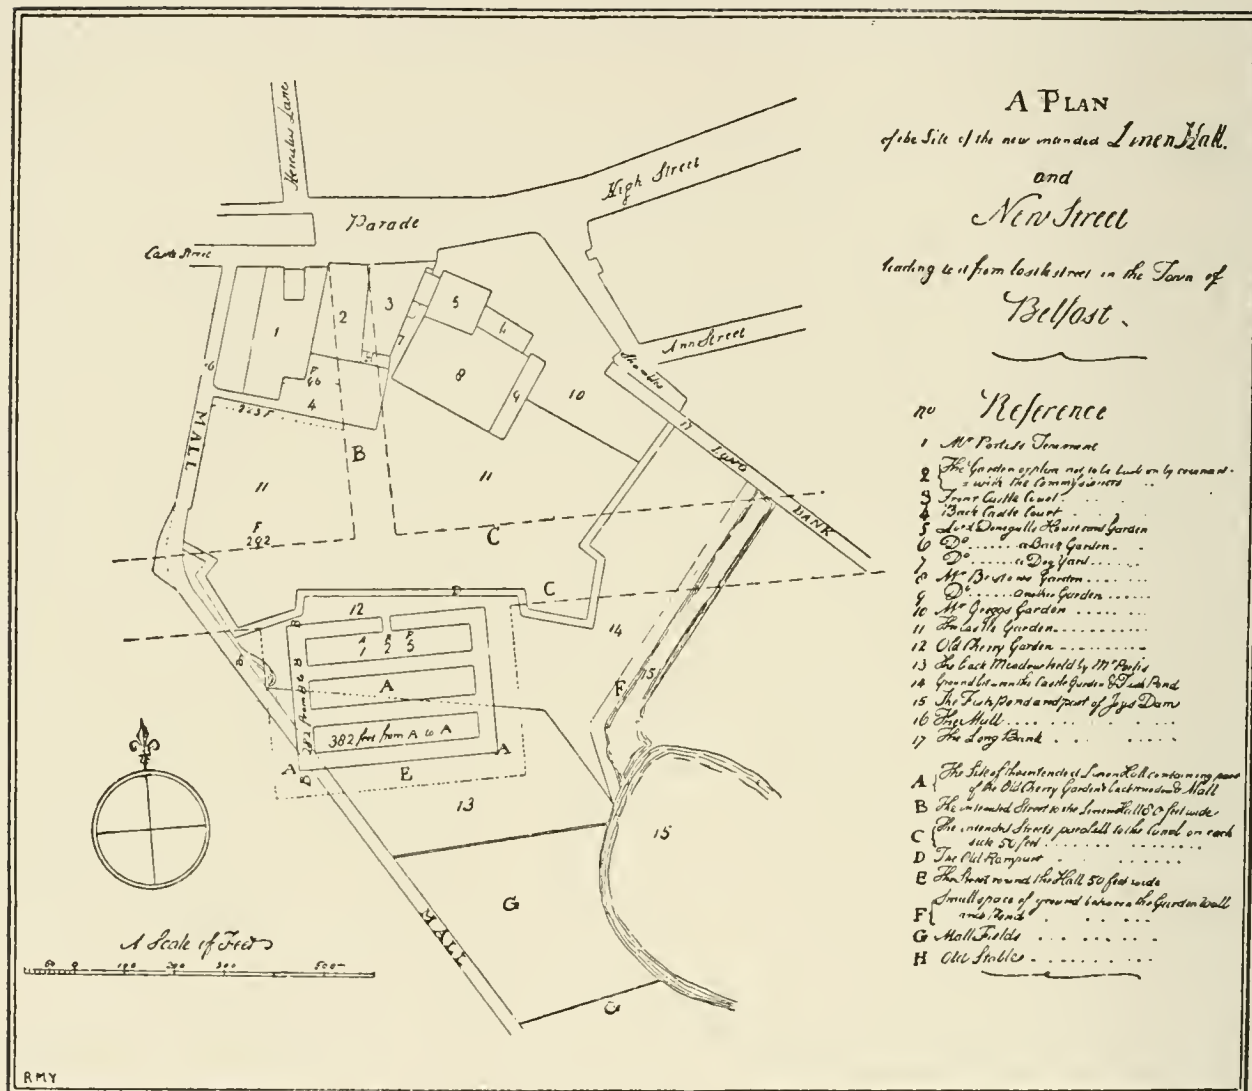 A PLAN
of the Site of the new intended Linen Hall.
and
New Street
leading to it from Castle street in the Town of
Belfast.
no Reference
1 Mr Portis's Tenement
2 The Garden or place not to be built on by covenant
with the Commissioners
3 Front Castle Court
4 Back Castle Court
5 Lord Donegalls House and Garden
6 Do a Back Garden
7 Do a Dog Yard
8 Mr Bristows Garden
9 Do another Garden
10 Mr Greggs Garden
11 The Castle Garden
12 Old Cherry Garden
13 The back Meadow held by Mr Portis
14 Ground between the Castle Garden & Fish Pond
15 The Fish pond and part of Joys Dam
16 The Mall
17 The Long Bank
A The Site of the intended Linen Hall containing part
of the Old Cherry Garden back meadow & Mall
B The intended Street to the Linen Hall 80 feet wide
C The intended Streets parallel to the Canal on each
side 50 feet
D The Old Rampart
E The Street round the Hall 50 feet wide
F Small space of ground between the Garden Wall
and Pond
G Mall Fields
H Old Stables
Hercules Lane
High Street
Parade
Castle Street
Ann Street
Shambles
17 LONG BANK
MALL
1
2
3
5
4
7
8
9
10
6
F
96
4
223 F
B
11
11
F
292
C
C
D
12
B
14
F
15
A
382 feet from A to A
A
A
B
E
13
15
G
MALL
G
A Scale of Feet
50 0 100 200 300 500
RMY